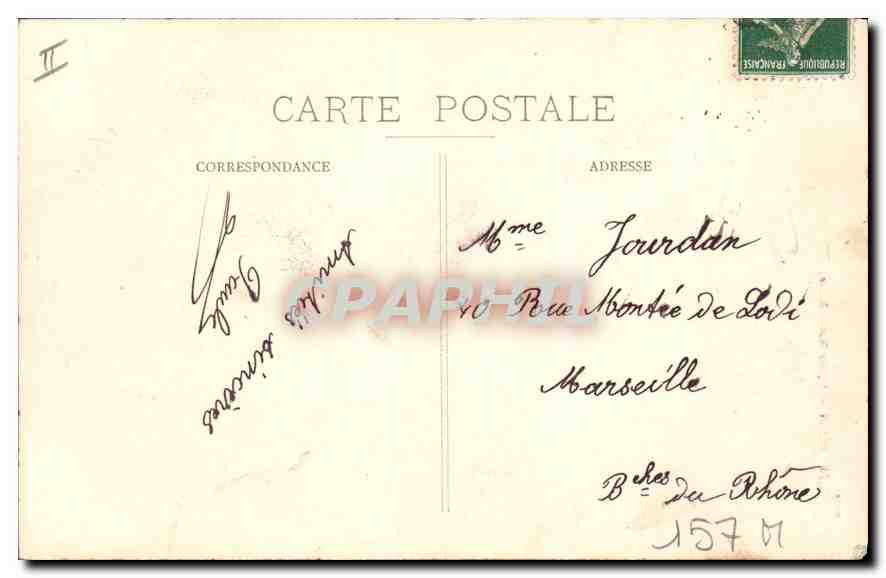 II
REPUBLIQUE FRANÇAISE
CARTE POSTALE
CORRESPONDANCE
ADRESSE
Amitiés
sincères
CPAPHIL
Mme Jourdan
40 Rue Montée de Lodi
Marseille
Bches du Rhône
157 M